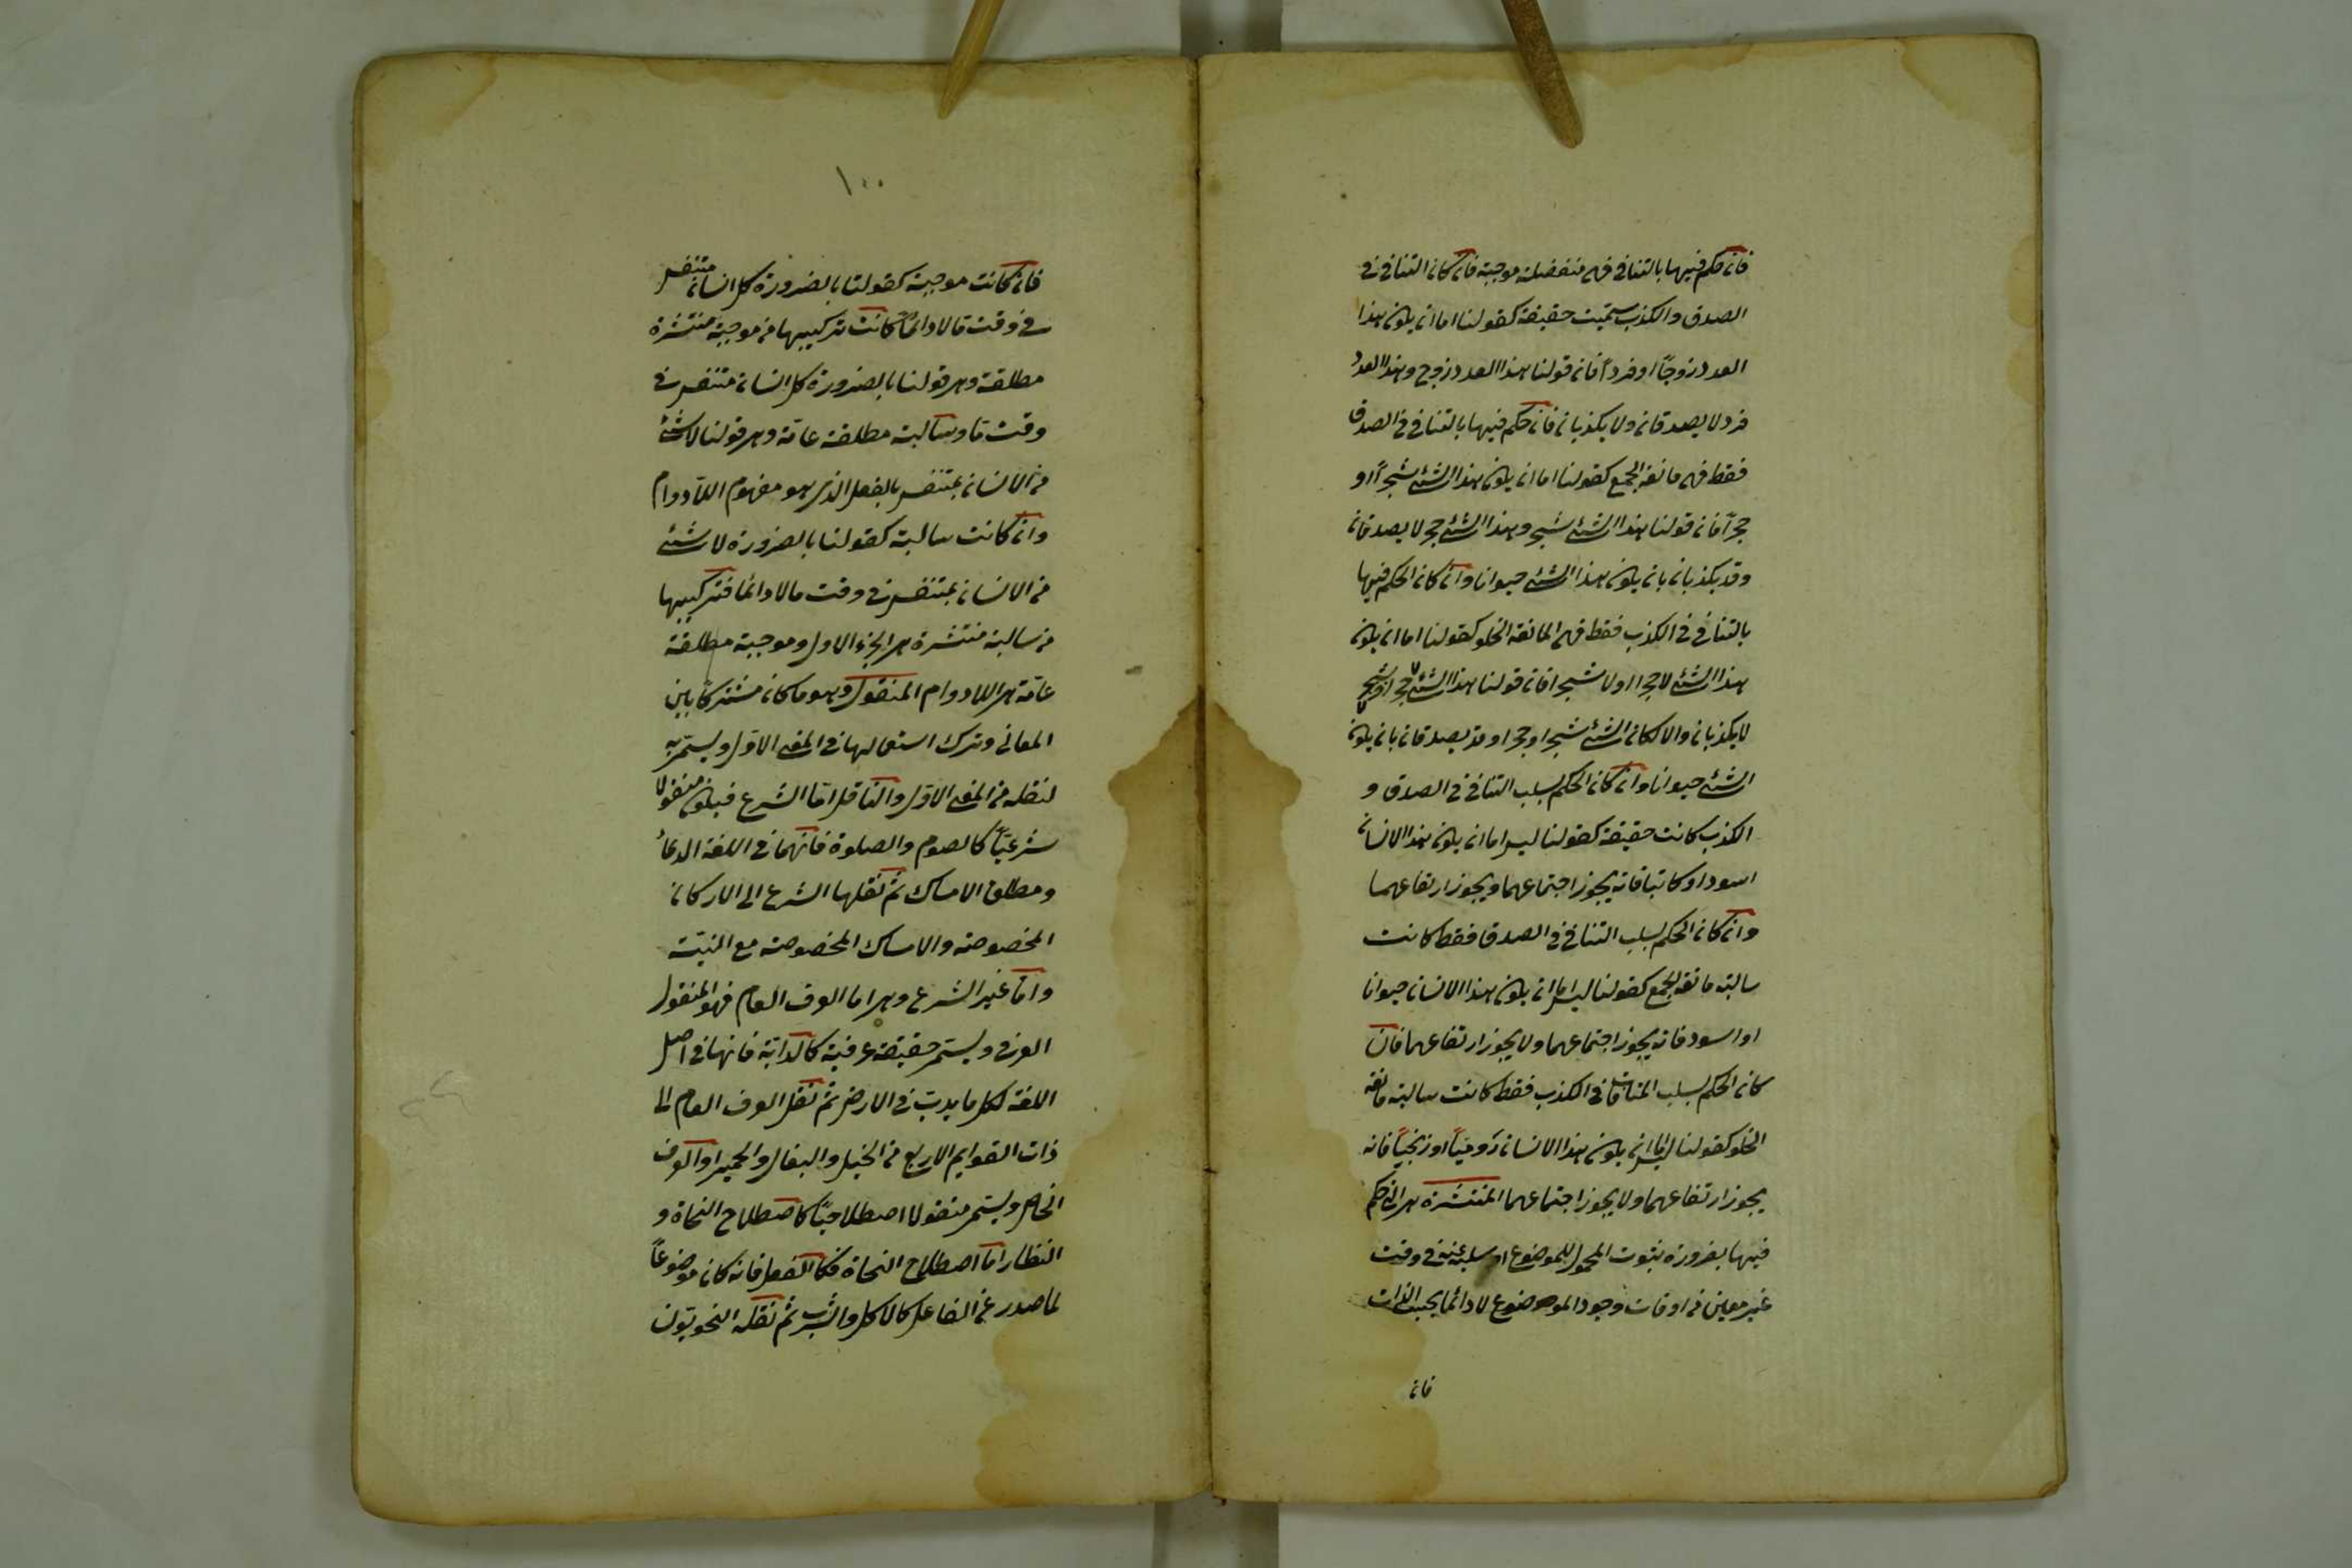 فان حكم فيها بالتنافى فهى منفصلة موجبة فان كان التنافى فى
الصدق والكذب سميت حقيقة كقولنا اما ان يكون هذا
العدد زوجاً او فرداً فان قولنا هذا العدد زوج وهذا العدد
فرد لا يصدقان ولا يكذبان فان حكم فيها بالتنافى فى الصدق
فقط فهى مانعة الجمع كقولنا اما ان يكون هذا الشئ شجراً او
حجراً فان قولنا هذا الشئ شجر وهذا الشئ حجر لا يصدقان
وقد يكذبان بان يكون هذا الشئ حيوانا وان كان الحكم فيها
بالتنافى فى الكذب فقط فهى المانعة الخلو كقولنا اما ان يكون
هذا الشئ لا حجرا او لا شجرا فان قولنا هذا الشئ لا حجر او لا شجر
لا يكذبان والا لكان الشئ شجرا وحجرا وقد يصدقان بان يكون
الشئ حيوانا وان كان الحكم بسلب التنافى فى الصدق و
الكذب كانت حقيقة كقولنا ليس اما ان يكون هذا الانسان
اسود او كاتبا فانه يجوز اجتماعهما ويجوز ارتفاعهما
وان كان الحكم بسلب التنافى فى الصدق فقط كانت
سالبة مانعة الجمع كقولنا ليس اما ان يكون هذا الانسان حيوانا
او اسود فانه يجوز اجتماعهما ولا يجوز ارتفاعهما فان
كان الحكم بسلب المنافات فى الكذب فقط كانت سالبة مانعة
الخلو كقولنا ليس اما ان يكون هذا الانسان روميّاً او زنجيّاً فانه
يجوز ارتفاعهما ولا يجوز اجتماعهما المنتشرة هى التى حكم
فيها بضرورة ثبوت المحمول للموضوع او سلبه عنه فى وقت
غير معين من اوقات وجود الموضوع لا دائما بحسب الذات
فان
١٠٠
فان كانت موجبة كقولنا بالضرورة كل انسان متنفس
فى وقت ما لا دائماً كانت تركيبها من موجبة منتشرة
مطلقة وهى قولنا بالضرورة كل انسان متنفس فى
وقت ما وسالبة مطلقة عامّة وهى قولنا لا شئ
من الانسان بمتنفس بالفعل الذى هو مفهوم اللّادوام
وان كانت سالبة كقولنا بالضرورة لا شئ
من الانسان بمتنفس فى وقت ما لا دائما فتركيبها
من سالبة منتشرة هى الجزء الاول وموجبة مطلقة
عامّة هى اللادوام المنقول وهو ما كان مشتركا بين
المعانى وترك استعمالها فى المعنى الاوّل ويسمّى به
لنقله من المعنى الاوّل والناقل امّا الشرع فيكون منقولا
شرعيّاً كالصوم والصلوة فانّهما فى اللغة الدعاء
ومطلق الامساك ثم نقلها الشرع الى الاركان
المخصوصة والامساك المخصوصة مع النيّة
وامّا غير الشرع وهى اما العرف العام فهو المنقول
العرفى ويسمى حقيقة عرفيّة كالدابّة فانها فى اصل
اللغة لكل ما يدبّ فى الارض ثم نقل العرف العام الى
ذات القوايم الاربع من الخيل والبغال والحمير او العرف
الخاص ويسمى منقولا اصطلاحيّا كاصطلاح النحاة و
النظار اما اصطلاح النحاة فكالفعل فانه كان موضوعاً
لما صدر عن الفاعل كالاكل والشرب ثم نقله النحويّون